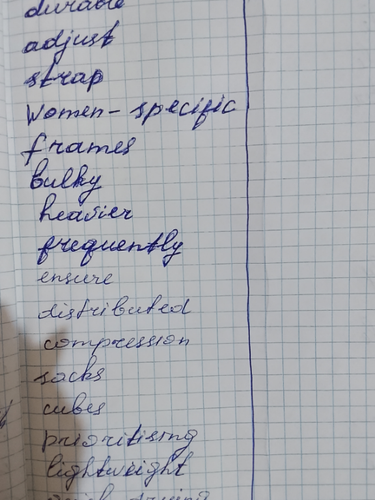 durable
adjust
strap
women-specific
frames
bulky
heavier
frequently
ensure
distributed
compression
sacks
cubes
prioritising
lightweight
quick-drying